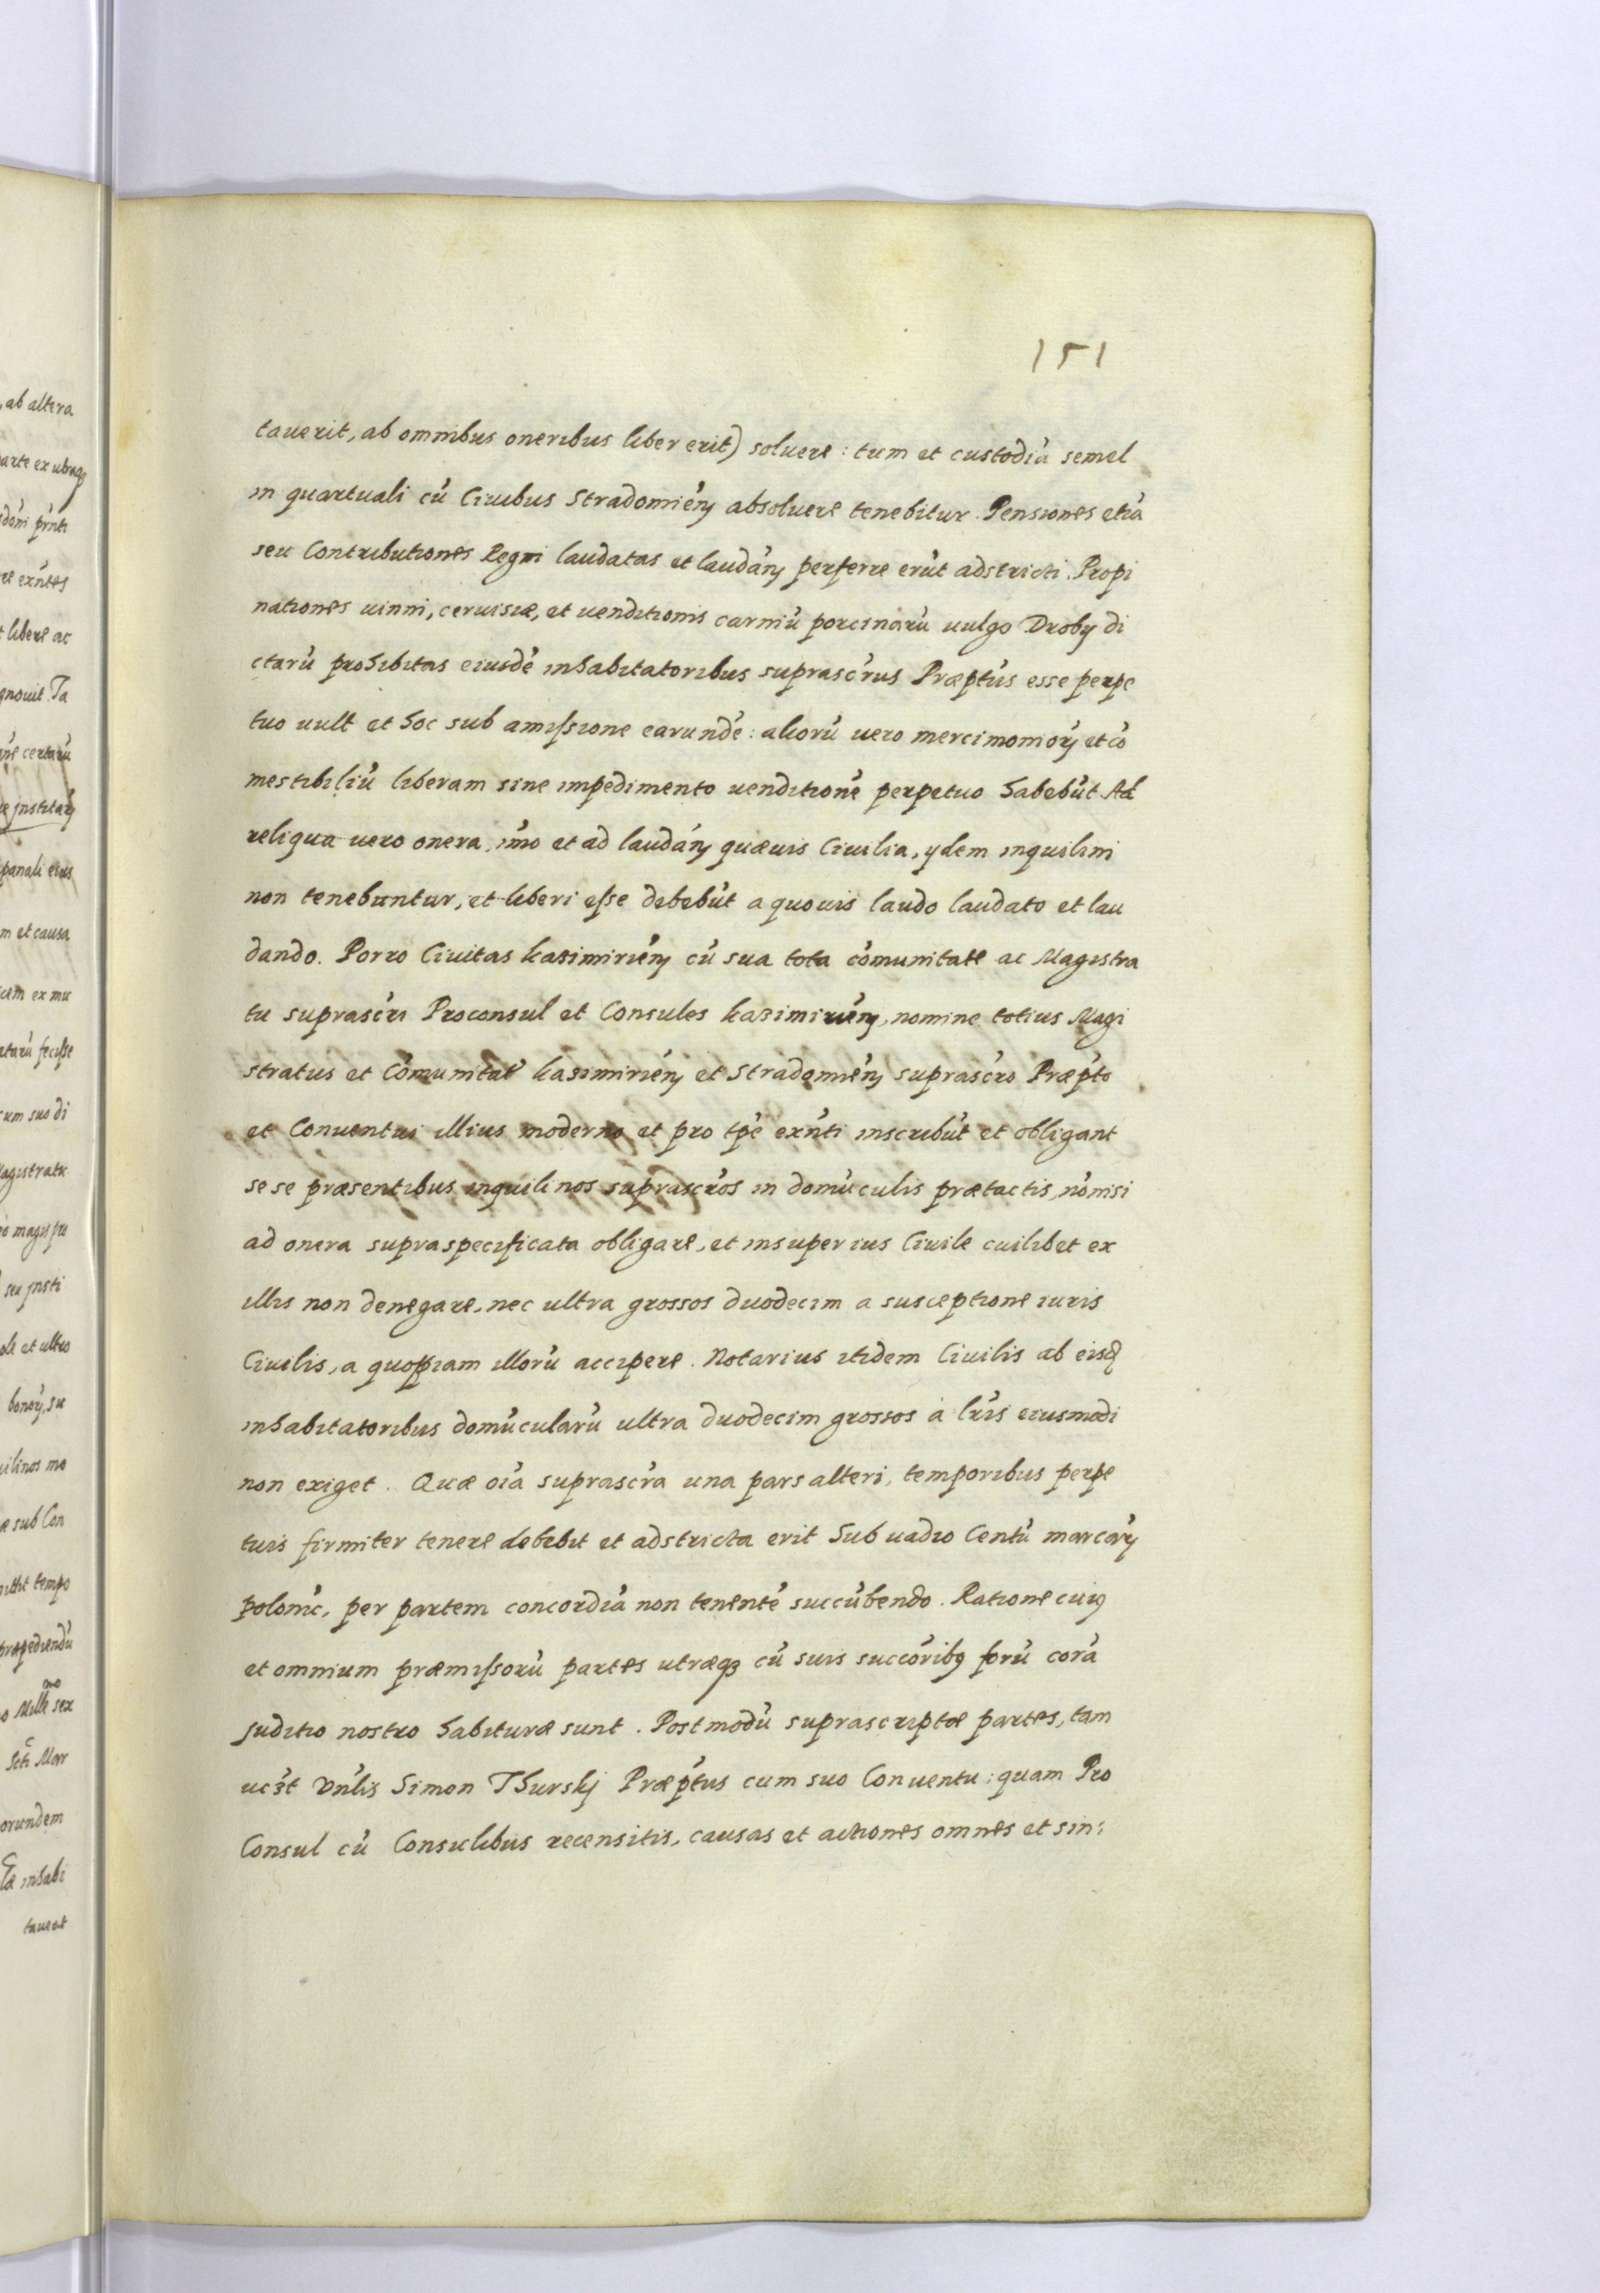 151
, ab altera
tauerit, ab omnibus oneribus liber erit) soluere : tum et custodiā semel
in quartuali cū Ciuibus Stradomień absoluere tenebitur. Pensiones etiā
seu Contributiones Regni laudatas et laudań perferre erūt adstricti. Propi
nationes uinni, ceruisiæ, et uenditionis carniū porcinarū uulgo Droby di
ctarū prohibitas eiusdē inhabitatoribus suprascr̃us Præptūs esse perpe
tuo uult et hoc sub amissione earundē : aliorū uero mercimoniorꝝ et cō
mestibiliū liberam sine impedimento uenditionē perpetuo habebūt. Ad
reliqua uero onera, im̃o et ad laudań quæuis Ciuilia, ijdem inquilini
non tenebuntur, et liberi esse debebūt a quouis laudo laudato et lau
dando. Porro Ciuitas Kazimirień cū sua tota cōmunitate ac Magistra
tu suprascr̃i Proconsul et Consules Kazimirień, nomine totius Magi
stratus et Cōmunitat̃ Kazimirień et Stradomień suprascr̃o Præpto
et Conuentui illius moderno et pro tp̃e exñti inscribūt et obligant
se se præsentibus inquilinos suprascr̃os in domūculis prætactis, nōnisi
ad onera supraspecificata obligare, et insuper ius Ciuile cuilibet ex
illis non denegare, nec ultra grossos duodecim a susceptione iuris
Ciuilis, a quopiam illorū accipere. Notarius itidem Ciuilis ab eisdē
inhabitatoribus domūcularū ultra duodecim grossos à lr̃is eiusmodi
non exiget. Quæ oĩa suprascr̃a una pars alteri, temporibus perpe
tuis firmiter tenere debebit et adstricta erit Sub uadio Centū marcarꝝ
polonic̃, per partem concordiā non tenentē succūbendo. Ratione cuiꝰ
et omnium præmissorū partes utræqꝫ cū suis succōribꝰ forū corā
Juditio nostro habituræ sunt. Postmodū suprascriptæ partes, tam
ucꝫt Vñlis Simon Thurskj Præptus cum suo Conuentu : quam Pro
Consul cū Consulibus recensitis, causas et actiones omnes et sin: